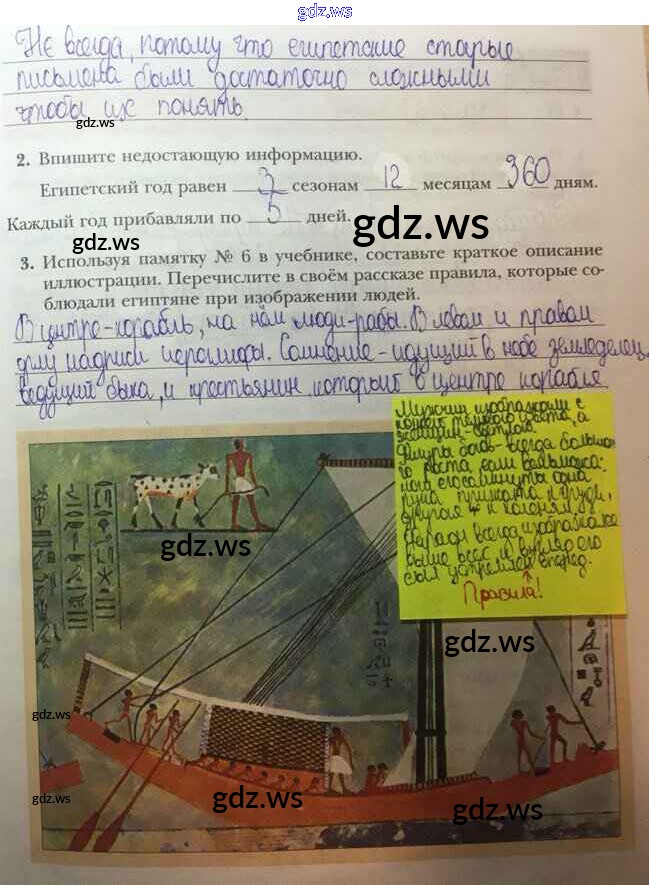 gdz.ws
Не всегда, потому что египетские старые
письмена были достаточно сложными
чтобы их понять.
gdz.ws
2. Впишите недостающую информацию.
Египетский год равен 3 сезонам 12 месяцам 360 дням.
Каждый год прибавляли по 5 дней.
gdz.ws
gdz.ws
3. Используя памятку № 6 в учебнике, составьте краткое описание
иллюстрации. Перечислите в своём рассказе правила, которые со-
блюдали египтяне при изображении людей.
В центре - корабль, на нём люди - рабы. В левом и правом
углу надписи иероглифы. Сомнение - идущий в небе земледелец,
ведущий быка, и крестьянин, который в центре корабля
Мужчин изображали с
кожей тёмного цвета, а
женщин - светлого.
Фигуры богов - всегда большо-
го роста, если вельможа:
ноги его сдвинуты одна
рука прижата к груди,
другая к коленям.
Фараон всегда изображался
выше всех и
был устремлён вперёд.
Правила!
gdz.ws
gdz.ws
gdz.ws
gdz.ws
gdz.ws
gdz.ws
gdz.ws